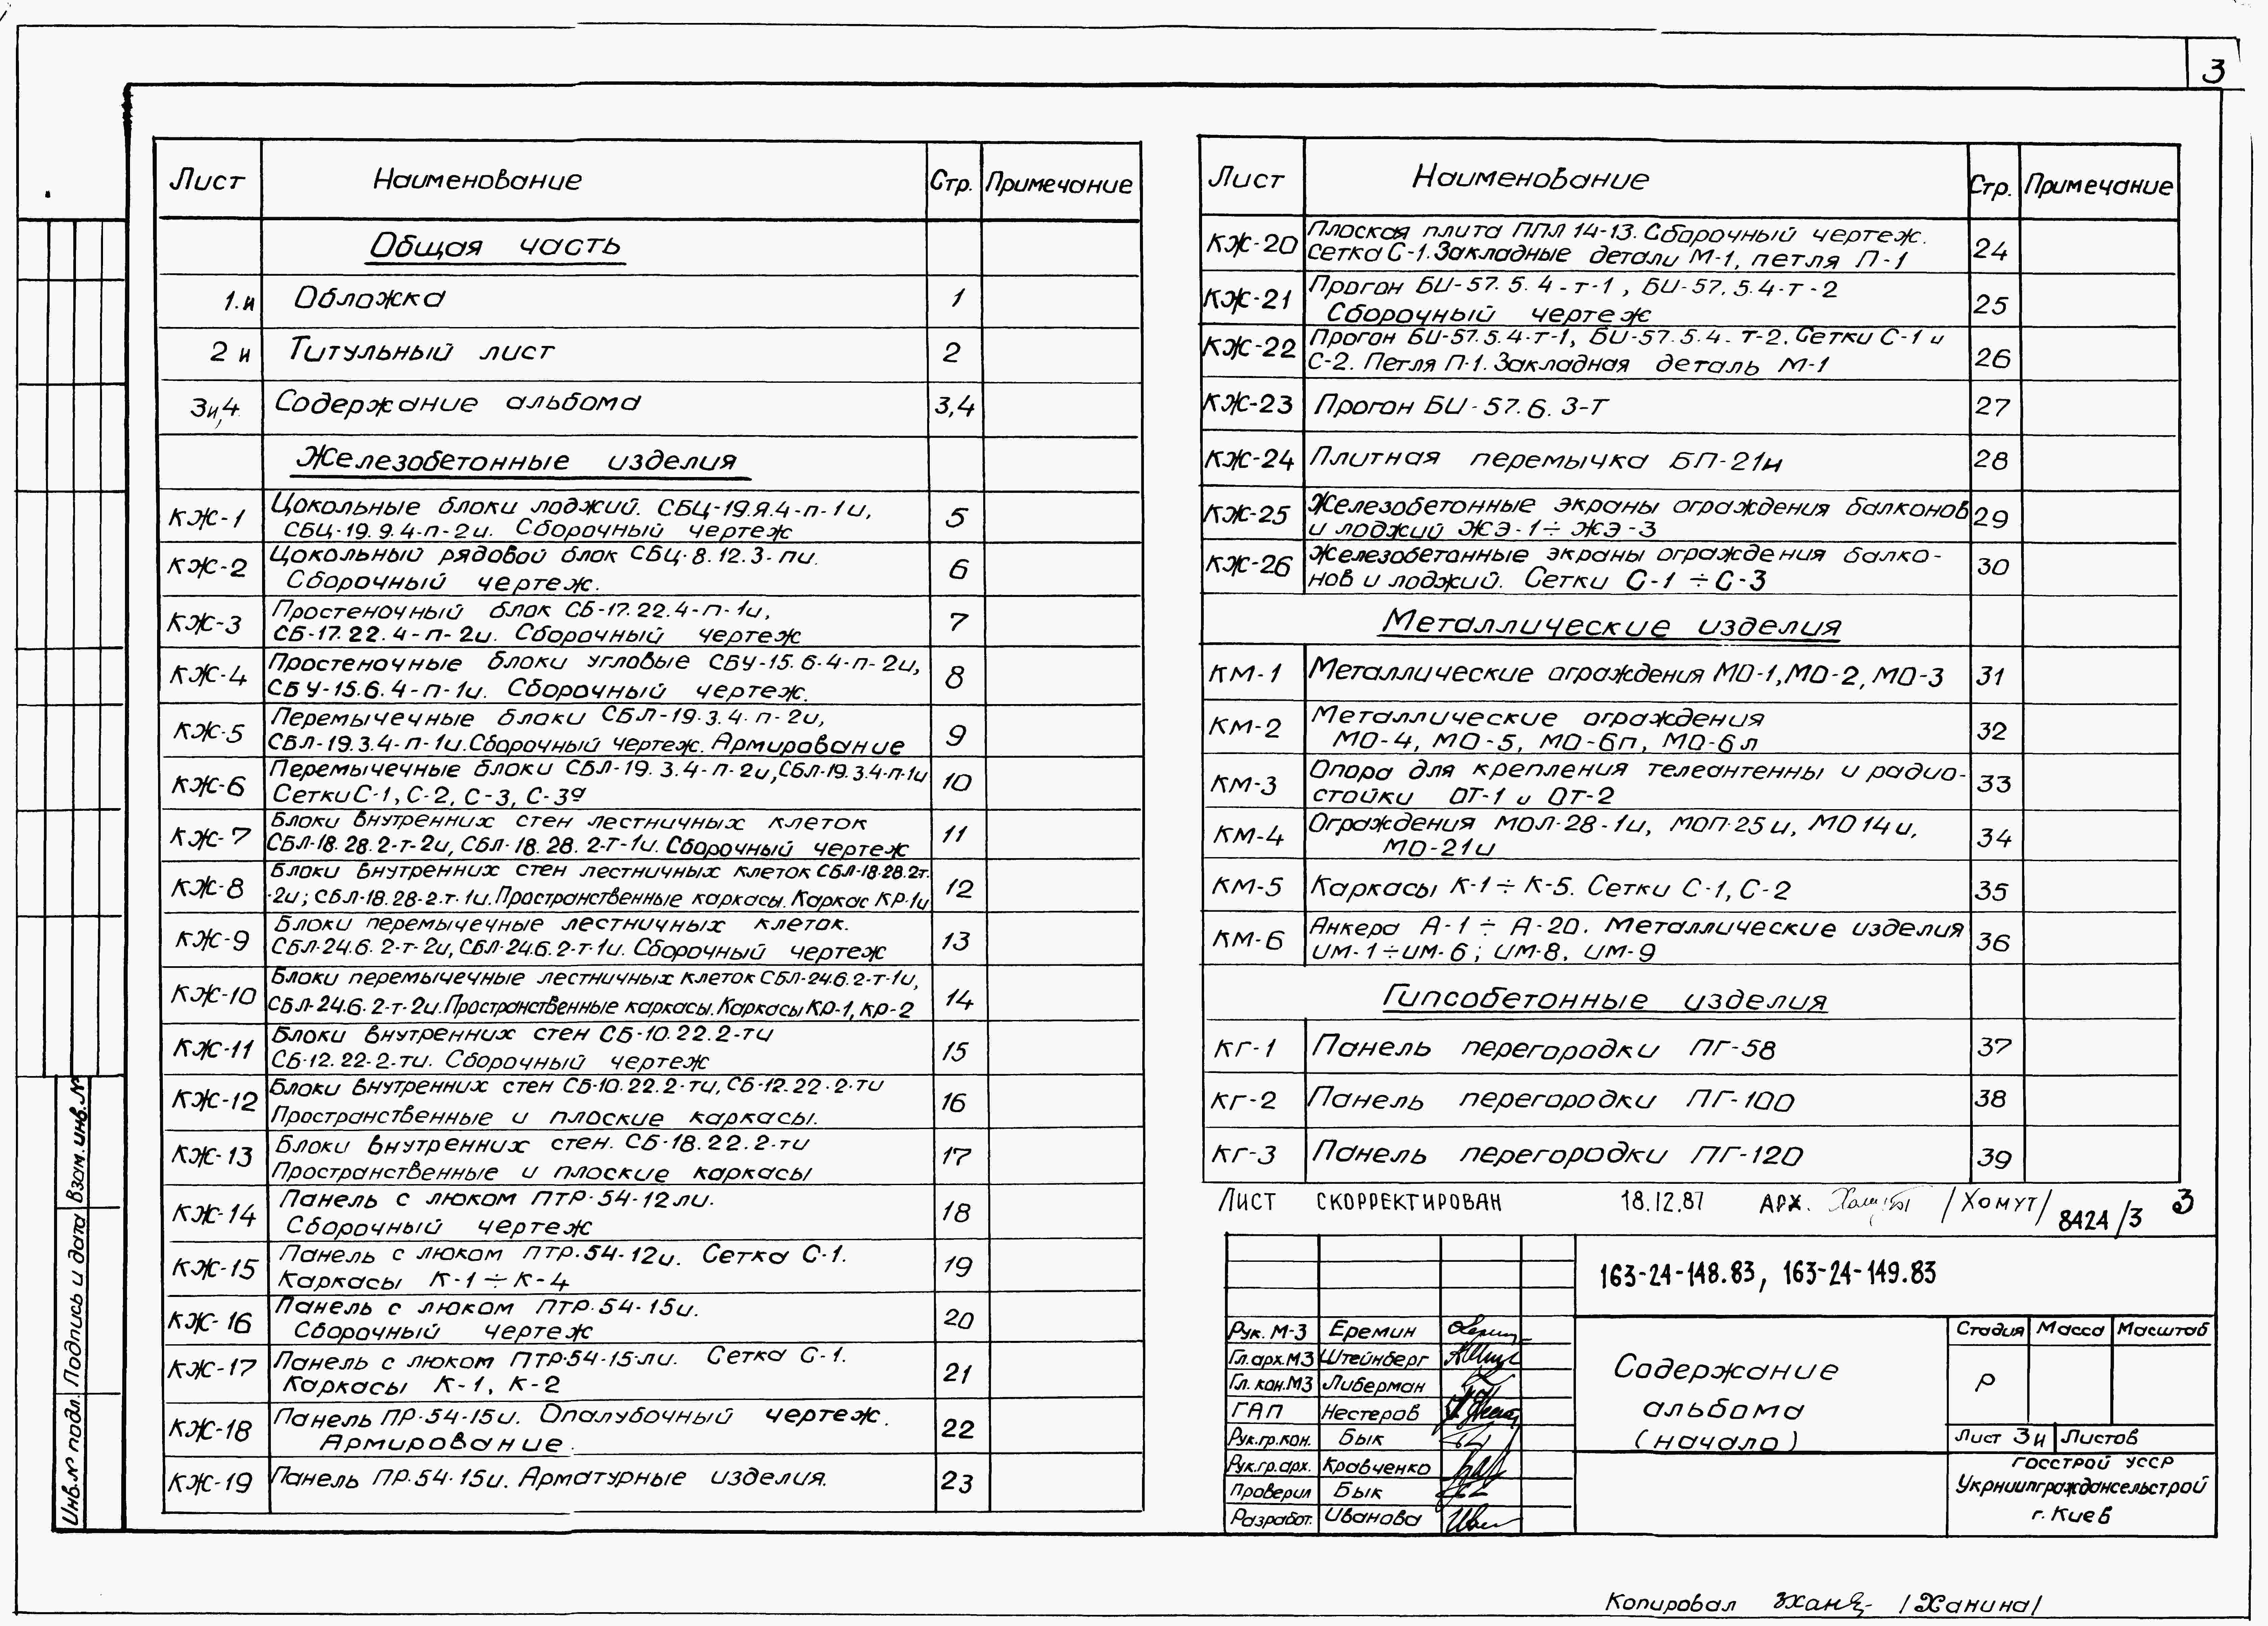 3
Лист Наименование Стр. Примечание
Общая часть
1.и Обложка 1
2 и Титульный лист 2
3и,4 Содержание альбома 3,4
Железобетонные изделия
КЖ-1 Цокольные блоки лоджий. СБЦ-19.9.4-п-1и, 5
СБЦ-19.9.4-п-2и. Сборочный чертеж
КЖ-2 Цокольный рядовой блок СБЦ-8.12.3-пи. 6
Сборочный чертеж.
КЖ-3 Простеночный блок СБ-17.22.4-п-1и, 7
СБ-17.22.4-п-2и. Сборочный чертеж
КЖ-4 Простеночные блоки угловые СБУ-15.6.4-п-2и, 8
СБУ-15.6.4-п-1и. Сборочный чертеж.
КЖ-5 Перемычечные блоки СБЛ-19.3.4.п-2и, 9
СБЛ-19.3.4-п-1и. Сборочный чертеж. Армирование
КЖ-6 Перемычечные блоки СБЛ-19.3.4-п-2и, СБЛ-19.3.4-п-1и 10
Сетки С-1, С-2, С-3, С-3а
КЖ-7 Блоки внутренних стен лестничных клеток 11
СБЛ-18.28.2-т-2и, СБЛ-18.28.2-т-1и. Сборочный чертеж
КЖ-8 Блоки внутренних стен лестничных клеток СБЛ-18-28.2т. 12
-2и; СБЛ-18.28-2.т.1и. Пространственные каркасы. Каркас КР-1и
КЖ-9 Блоки перемычечные лестничных клеток. 13
СБЛ-24.6.2-т-2и, СБЛ-24.6.2-т-1и. Сборочный чертеж
КЖ-10 Блоки перемычечные лестничных клеток СБЛ-24.6.2-т-1и, 14
СБЛ-24.6.2-т-2и. Пространственные каркасы. Каркасы КР-1, КР-2
КЖ-11 Блоки внутренних стен СБ-10.22.2-ти 15
СБ-12.22-2-ти. Сборочный чертеж
КЖ-12 Блоки внутренних стен СБ-10.22.2-ти, СБ-12.22.2-ти 16
Пространственные и плоские каркасы.
КЖ-13 Блоки внутренних стен. СБ-18.22.2-ти 17
Пространственные и плоские каркасы
КЖ-14 Панель с люком ПТР-54-12ли. 18
Сборочный чертеж
КЖ-15 Панель с люком ПТР.54-12и. Сетка С-1. 19
Каркасы К-1 ÷ К-4
КЖ-16 Панель с люком ПТР.54-15и. 20
Сборочный чертеж
КЖ-17 Панель с люком ПТР.54-15-ли. Сетка С-1. 21
Каркасы К-1, К-2
КЖ-18 Панель ПР.54-15и. Опалубочный чертеж. 22
Армирование.
КЖ-19 Панель ПР.54-15и. Арматурные изделия. 23
Лист Наименование Стр. Примечание
КЖ-20 Плоская плита ППЛ 14-13. Сборочный чертеж. 24
Сетка С-1. Закладные детали М-1, петля П-1
КЖ-21 Прогон БИ-57.5.4-т-1, БИ-57.5.4-т-2 25
Сборочный чертеж
КЖ-22 Прогон БИ-57.5.4-т-1, БИ-57.5.4-т-2. Сетки С-1 и 26
С-2. Петля П-1. Закладная деталь М-1
КЖ-23 Прогон БИ-57.6.3-т 27
КЖ-24 Плитная перемычка БП-21и 28
КЖ-25 Железобетонные экраны ограждения балконов 29
и лоджий ЖЭ-1 ÷ ЖЭ-3
КЖ-26 Железобетонные экраны ограждения балко- 30
нов и лоджий. Сетки С-1 ÷ С-3
Металлические изделия
КМ-1 Металлические ограждения МО-1, МО-2, МО-3 31
КМ-2 Металлические ограждения 32
МО-4, МО-5, МО-6п, МО-6л
КМ-3 Опора для крепления телеантенны и радио- 33
стойки ОТ-1 и ОТ-2
КМ-4 Ограждения МОЛ-28-1и, МОП-25и, МО14и, 34
МО-21и
КМ-5 Каркасы К-1 ÷ К-5. Сетки С-1, С-2 35
КМ-6 Анкера А-1 ÷ А-20. Металлические изделия 36
ИМ-1÷ИМ-6; ИМ-8, ИМ-9
Гипсобетонные изделия
КГ-1 Панель перегородки ПГ-58 37
КГ-2 Панель перегородки ПГ-100 38
КГ-3 Панель перегородки ПГ-120 39
Лист скорректирован 18.12.87 арх. /Хомут/ 8424/3 3
163-24-148.83, 163-24-149.83
Рук. М-3 Еремин
Гл.арх.М3 Штейнберг
Гл.кон.М3 Либерман
ГАП Нестеров
Рук.гр.кон. Бык
Рук.гр.арх. Кравченко
Проверил Бык
Разработ. Иванова
Содержание
альбома
(начало)
Стадия Масса Масштаб
Р
Лист 3и Листов
Госстрой УССР
Укрниипграждансельстрой
г. Киев
Инв.№ подл. Подпись и дата Взам.инв.№
Копировал /Ханина/